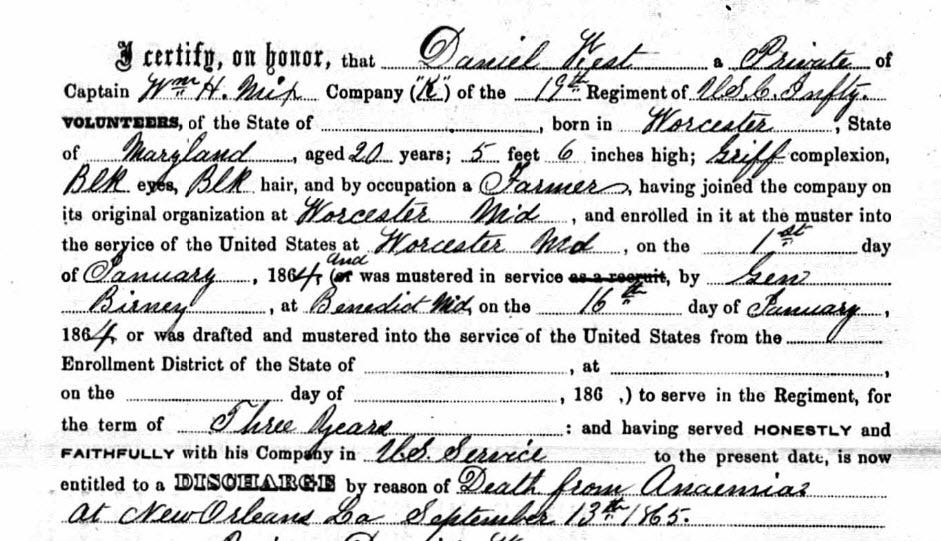 I certify, on honor, that Daniel West a Private of
Captain Wm H. Mix Company ("K") of the 19th Regiment of U.S.C. Infty.
VOLUNTEERS, of the State of , born in Worcester , State
of Maryland , aged 20 years; 5 feet 6 inches high; Griff complexion,
Blk eyes, Blk hair, and by occupation a Farmer , having joined the company on
its original organization at Worcester Md , and enrolled in it at the muster into
the service of the United States at Worcester Md , on the 1st day
of January , 1864, and (or was mustered in service as a recruit, by Gen
Birney , at Benedict Md, on the 16th day of January ,
1864, or was drafted and mustered into the service of the United States from the
Enrollment District of the State of , at ,
on the day of , 186 ,) to serve in the Regiment, for
the term of Three Years : and having served HONESTLY and
FAITHFULLY with his Company in U.S. Service to the present date, is now
entitled to a DISCHARGE by reason of Death from Anaemia
at New Orleans La September 13th 1865.